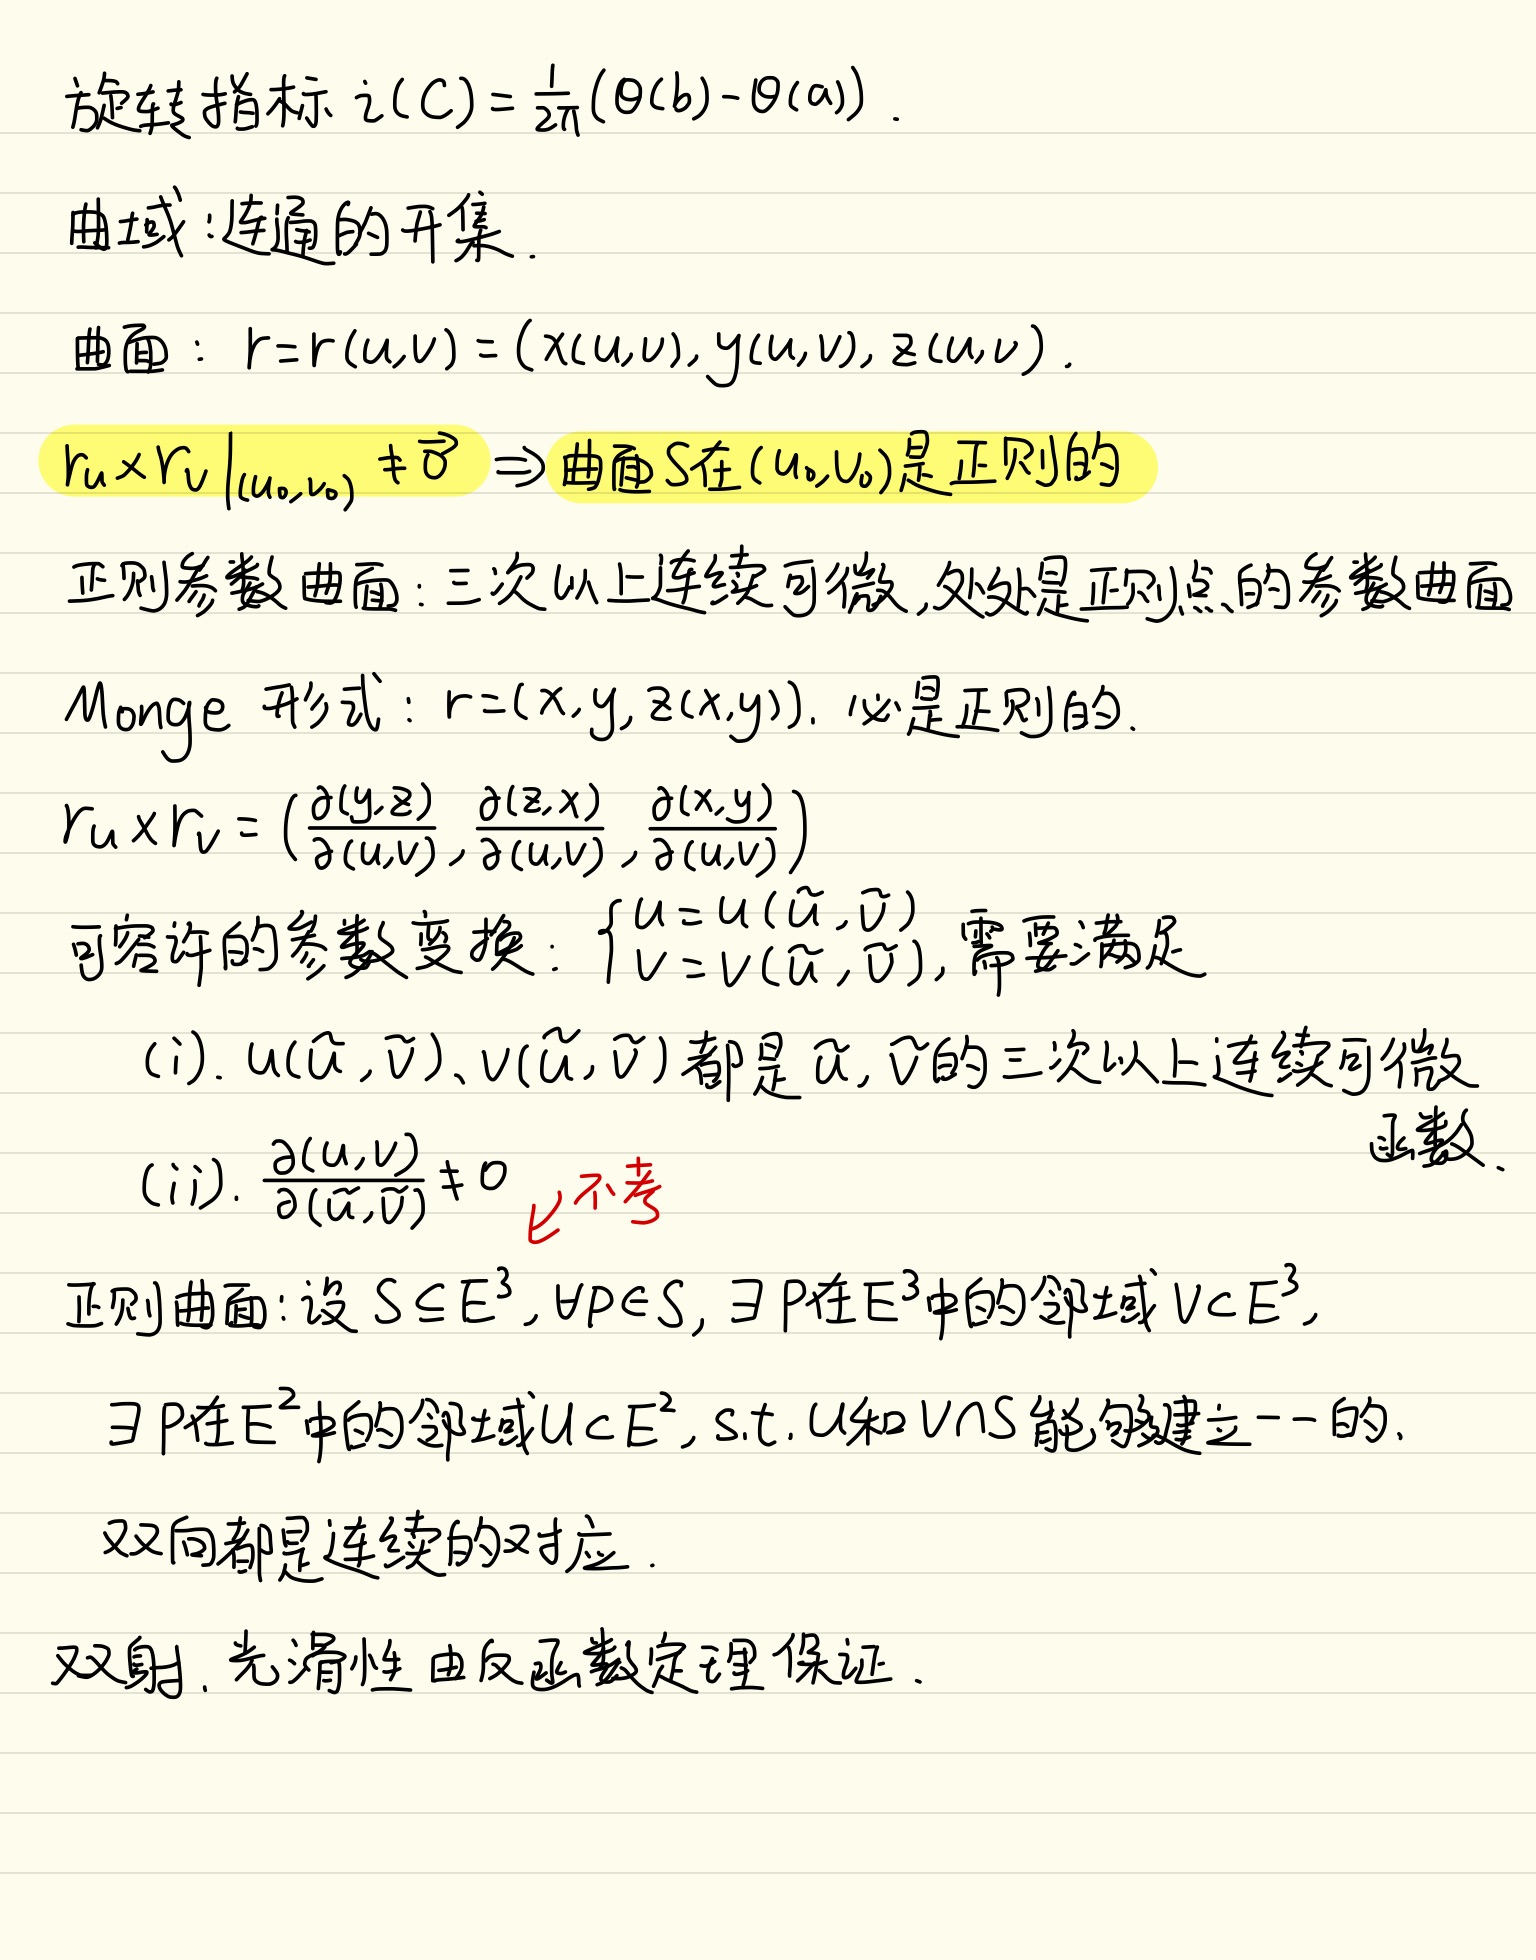 旋转指标 i(C) = 1/2π (θ(b) - θ(a)).
曲域:连通的开集.
曲面: r=r(u,v) = (x(u,v), y(u,v), z(u,v).
r_u × r_v |_(u₀,v₀) ≠ 0⃗ ⇒ 曲面S在(u₀,v₀)是正则的
正则参数曲面:三次以上连续可微,处处是正则点的参数曲面
Monge 形式: r=(x,y,z(x,y)). 必是正则的.
r_u × r_v = (∂(y,z)/∂(u,v), ∂(z,x)/∂(u,v), ∂(x,y)/∂(u,v))
可容许的参数变换: { u = u(ũ,ṽ)
v = v(ũ,ṽ), 需要满足
(i). u(ũ,ṽ)、v(ũ,ṽ)都是ũ,ṽ的三次以上连续可微
函数.
(ii). ∂(u,v)/∂(ũ,ṽ) ≠ 0
↙不考
正则曲面:设 S⊆E³, ∀p∈S, ∃ P在E³中的邻域 V⊂E³,
∃ P在E²中的邻域U⊂E², s.t. U和V∩S能够建立一一的.
双向都是连续的对应.
双射.光滑性由反函数定理保证.